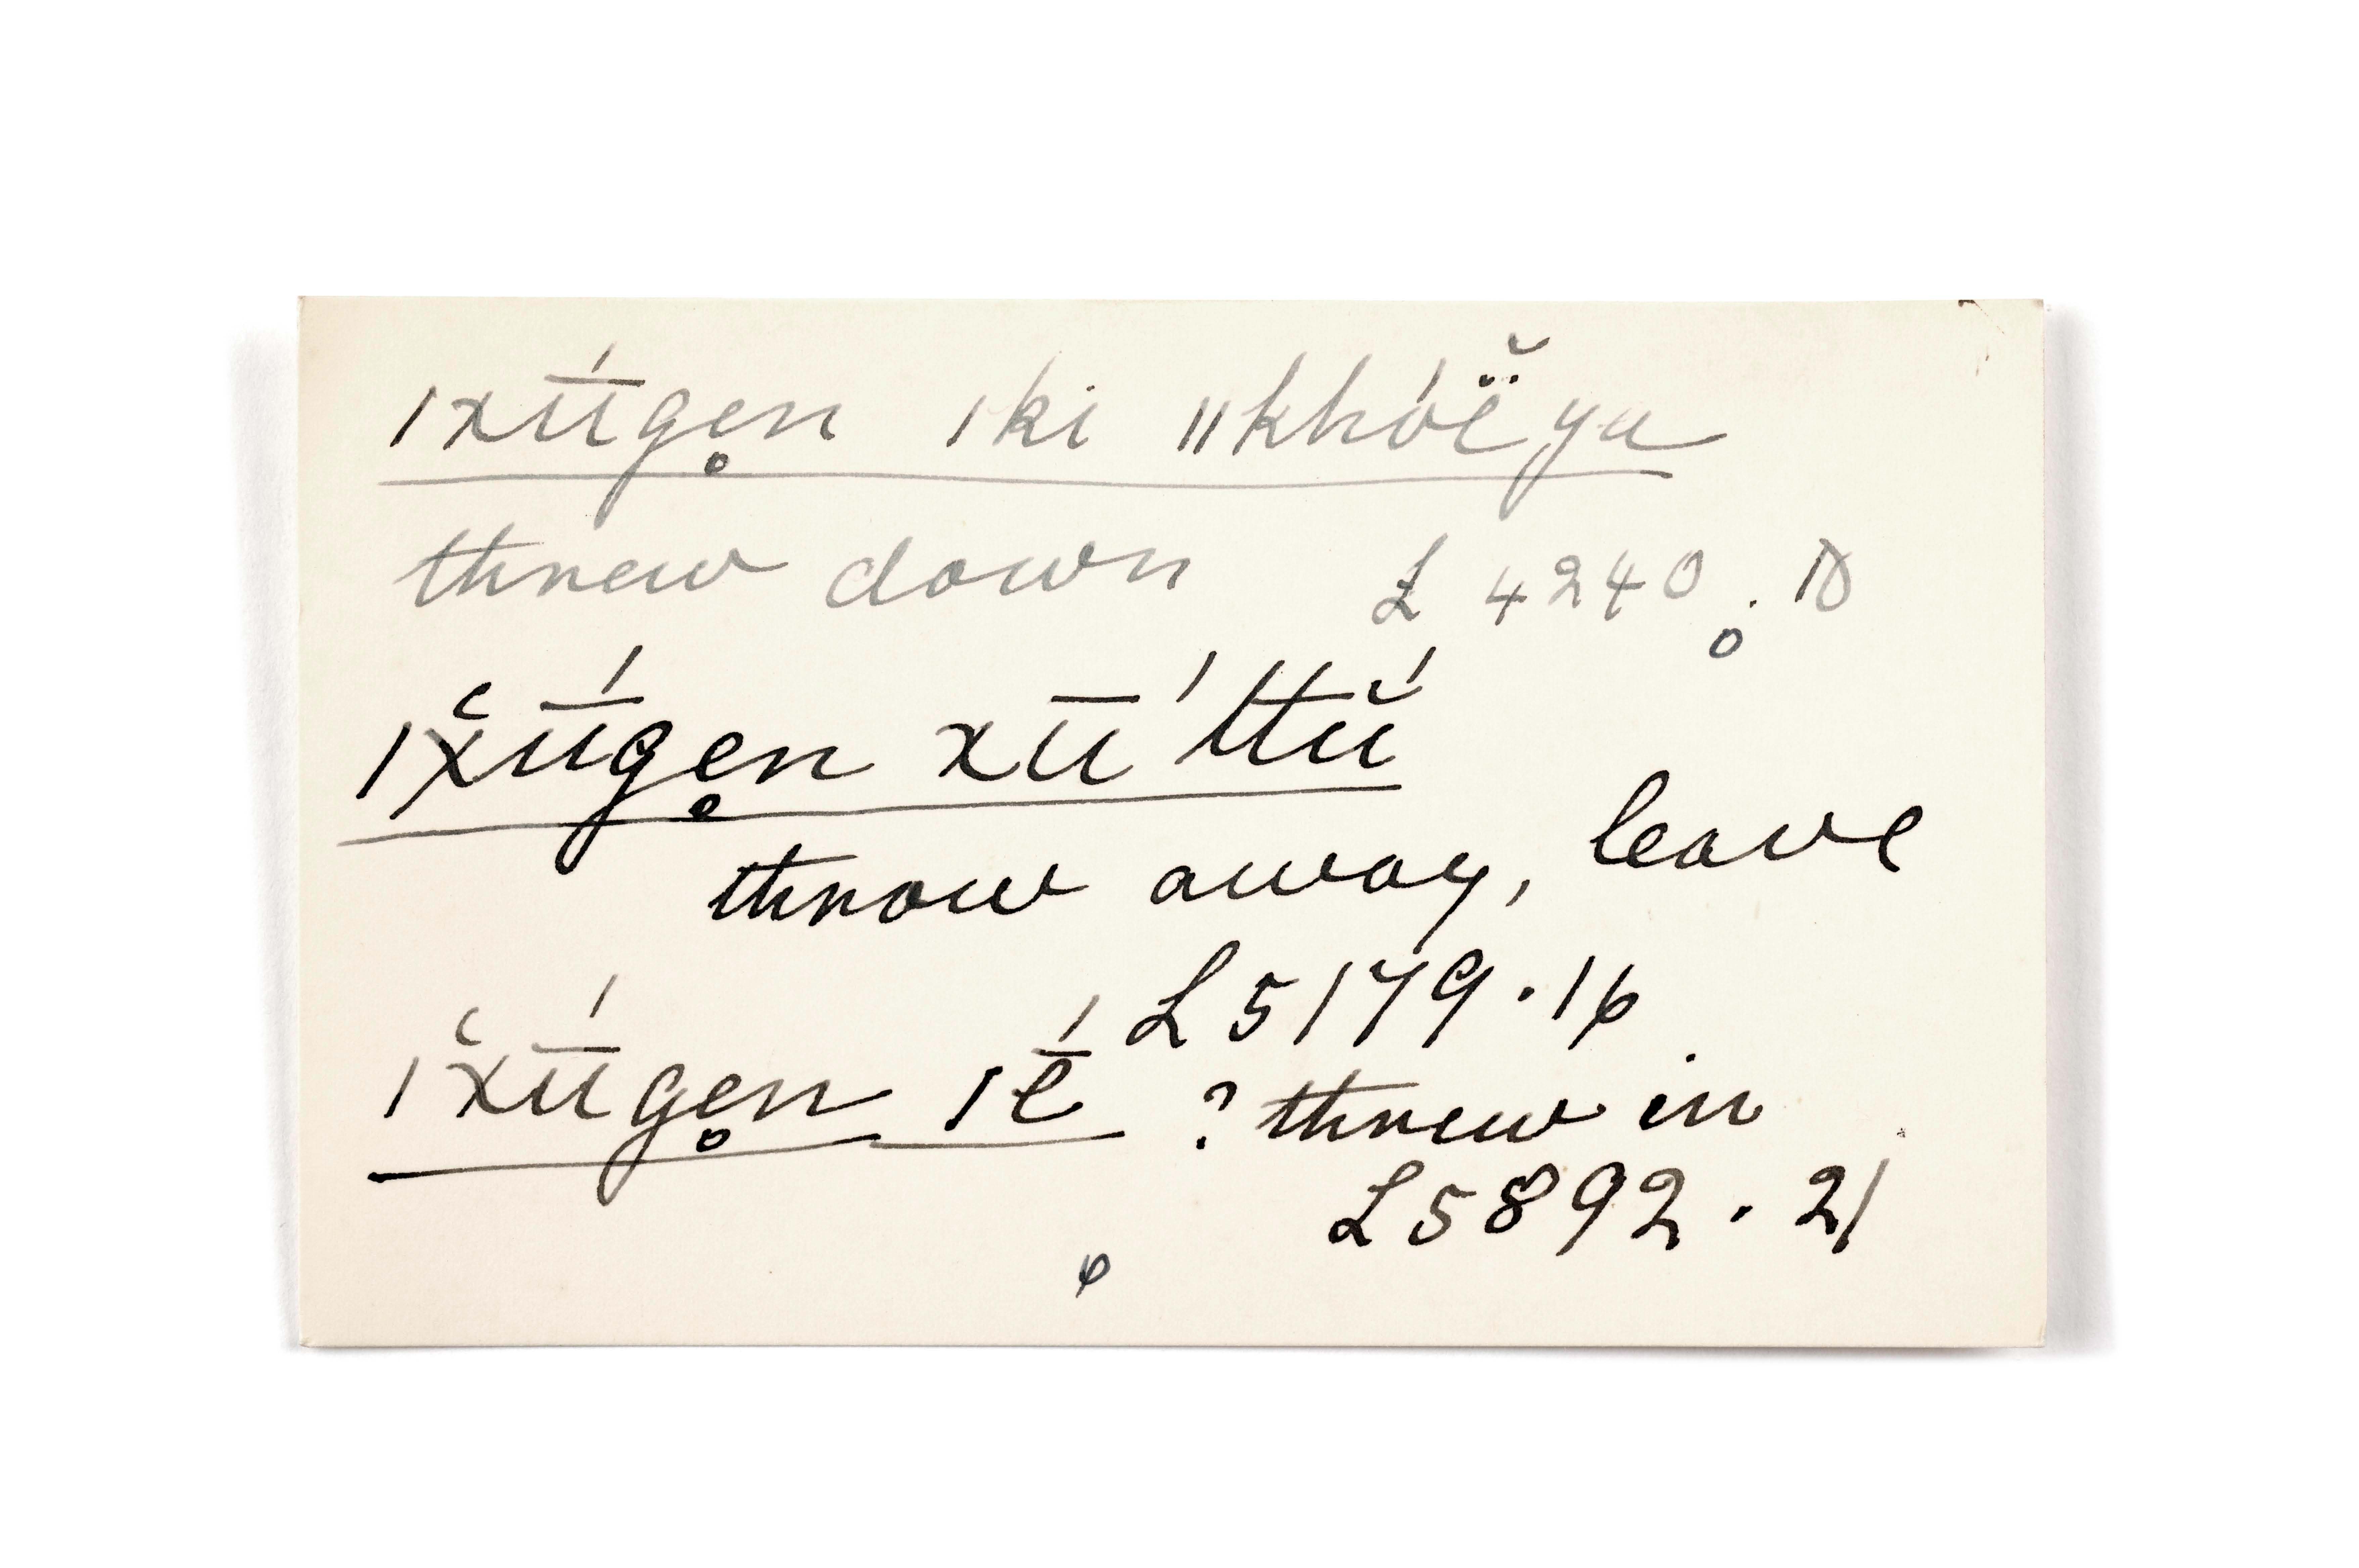 |xū́gen̥ |ki ||khóë̆ ya
threw down L 4240.
|x̆ū́gen̥ xū́'ttŭ́
throw away, leave
L5179.16
|x̆ū́gen̥ |ḗ ? threw in
L5892.21